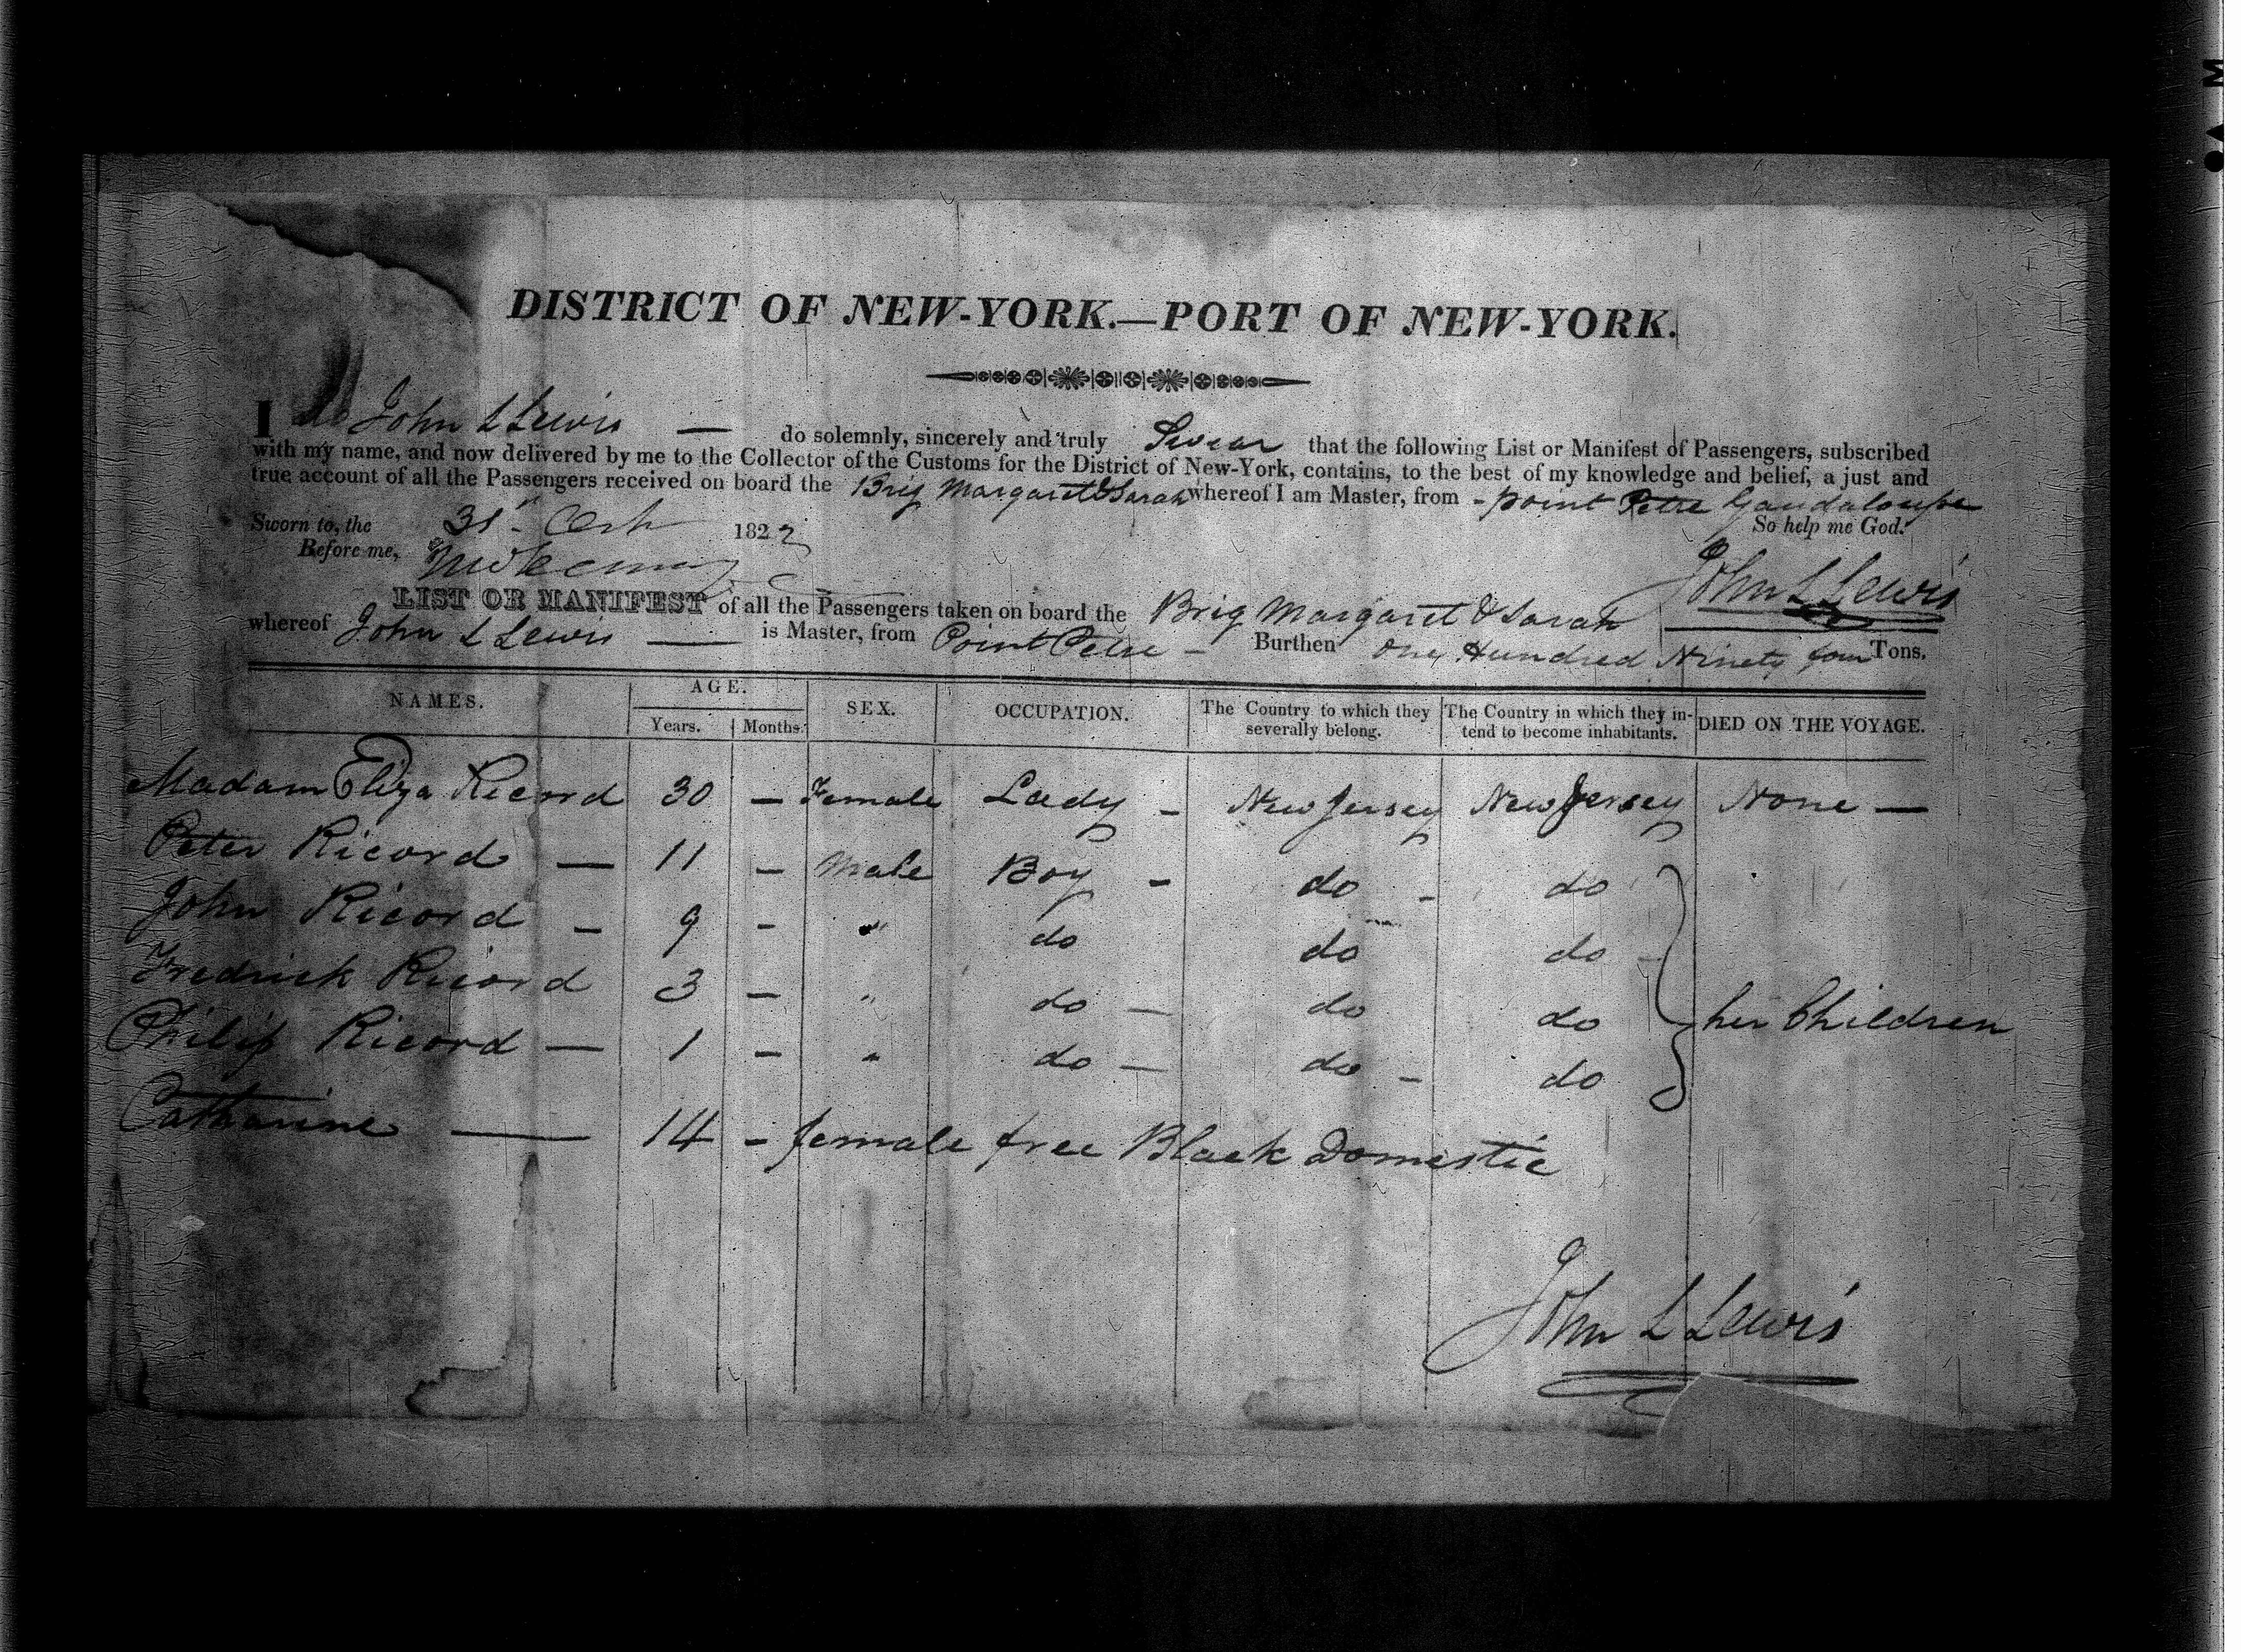 DISTRICT OF NEW-YORK.—PORT OF NEW-YORK.
I John L Lewis — do solemnly, sincerely and truly Swear that the following List or Manifest of Passengers, subscribed
with my name, and now delivered by me to the Collector of the Customs for the District of New-York, contains, to the best of my knowledge and belief, a just and
true account of all the Passengers received on board the Brig Margaret & Sarah whereof I am Master, from - point Petre Gaudaloupe
Sworn to, the 31st 1822 So help me God.
Before me,
John L Lewis
LIST OR MANIFEST of all the Passengers taken on board the Brig Margaret & Sarah
whereof John L Lewis — is Master, from Point Petre - Burthen One Hundred Ninety four Tons.
NAMES. AGE. SEX. OCCUPATION. The Country to which they severally belong. The Country in which they intend to become inhabitants. DIED ON THE VOYAGE.
Years. Months.
Madam Eliza Ricord 30 — Female Lady - New Jersey New Jersey None —
Peter Ricord — 11 - Male Boy - do - do
John Ricord - 9 - " do do do -
Fredrick Ricord 3 - " do - do do her Children
Philip Ricord — 1 - " do - do - do
Catharine — 14 - female free Black Domestic
John L Lewis